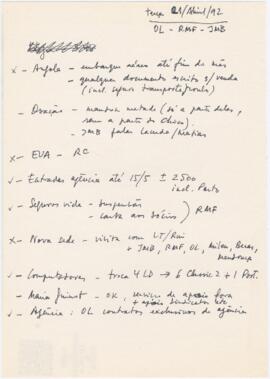 terça 21/Abril/92
OL - RMF - JMB
x - Angola - embarque aéreo até fim do mês
- qualquer documento escrito s/ venda
(incl. seguro transporte/fronts)
- Doação - mantém metade (só a parte deles,
sem a parte do Chico)
- JMB falar Lacerda/Matias
x - EVA - RC
✓ - Entradas agência até 15/5 ± 2500
incl. Porto
✓ - Seguros vida - suspensão
- carta aos sócios } RMF
x - Nova sede - visita com LT/Rui
+ JMB, RMF, OL,
✓ - Computadores - troca 4 LD → 6 Classic 2 + 1 Port.
✓ - Maria - OK, serviço de apoio fora
+ apoio sindicatos etc
✓ - Agência: OL contratos exclusivos de agência